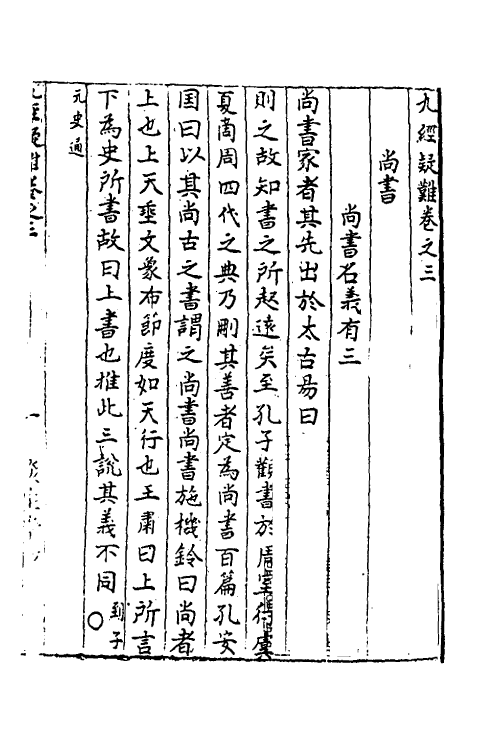 九經疑難卷之三
尚書
尚書名義有三
尚書家者其先出於太古易曰
則之故知書之所起遠矣至孔子觀書於周室得虞
夏商周四代之典乃刪其善者定為尚書百篇孔安
国曰以其尚古之書謂之尚書尚書施機鈴曰尚者
上也上天垂文象布節度如天行也王肅曰上所言
下為史所書故曰上書也推此三說其義不同○
劉子
元史通
九經疑難卷之三
一